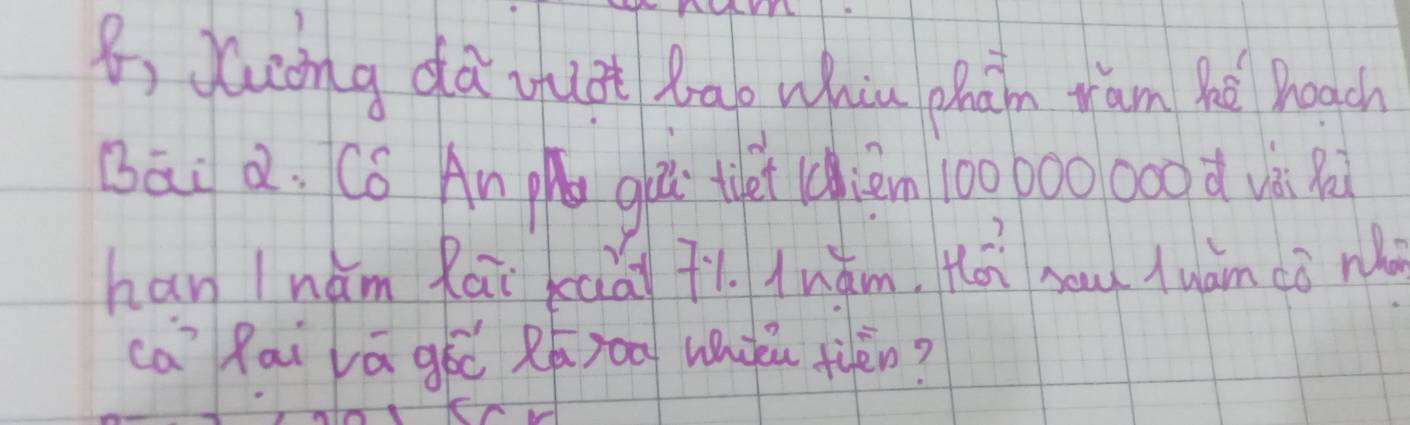 b, Xưởng đã vượt bao nhiu phầm trăm kế hoạch
Bài 2. Cô An gửi tiết kiệm 100 000 000 đ với kì
hạn 1 năm lãi xuất 7% 1 năm. Hỏi sau 1 năm cô nhận
cả lãi và gốc là bao nhiêu tiền?